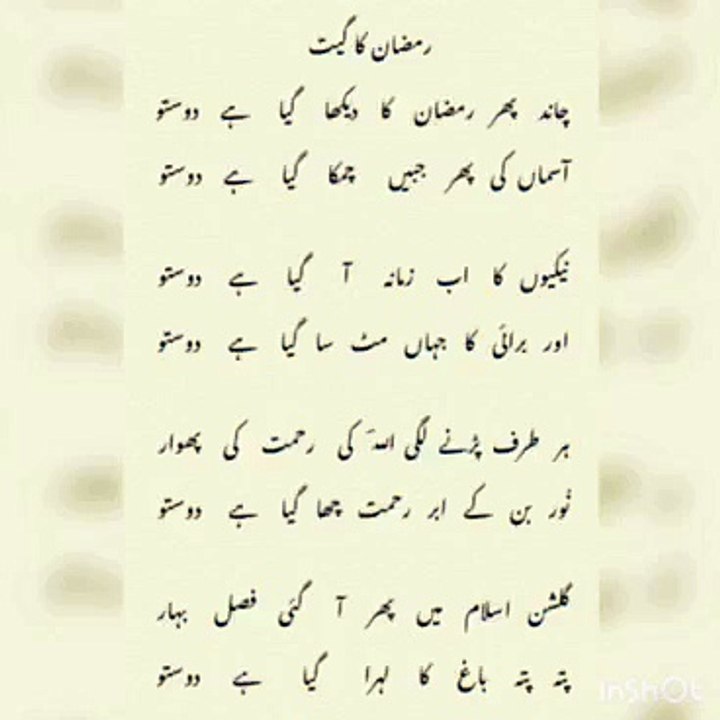 رمضان کا گیت
چاند پھر رمضان کا دیکھا گیا ہے دوستو
آسماں کی پھر جبیں چمکا گیا ہے دوستو
نیکیوں کا اب زمانہ آ گیا ہے دوستو
اور برائی کا جہاں مٹ سا گیا ہے دوستو
ہر طرف پڑنے لگی اللہ کی رحمت کی پھوار
نُور بن کے ابر رحمت چھا گیا ہے دوستو
گلشن اسلام میں پھر آ گئی فصل بہار
پتہ پتہ باغ کا لہرا گیا ہے دوستو
InShOt